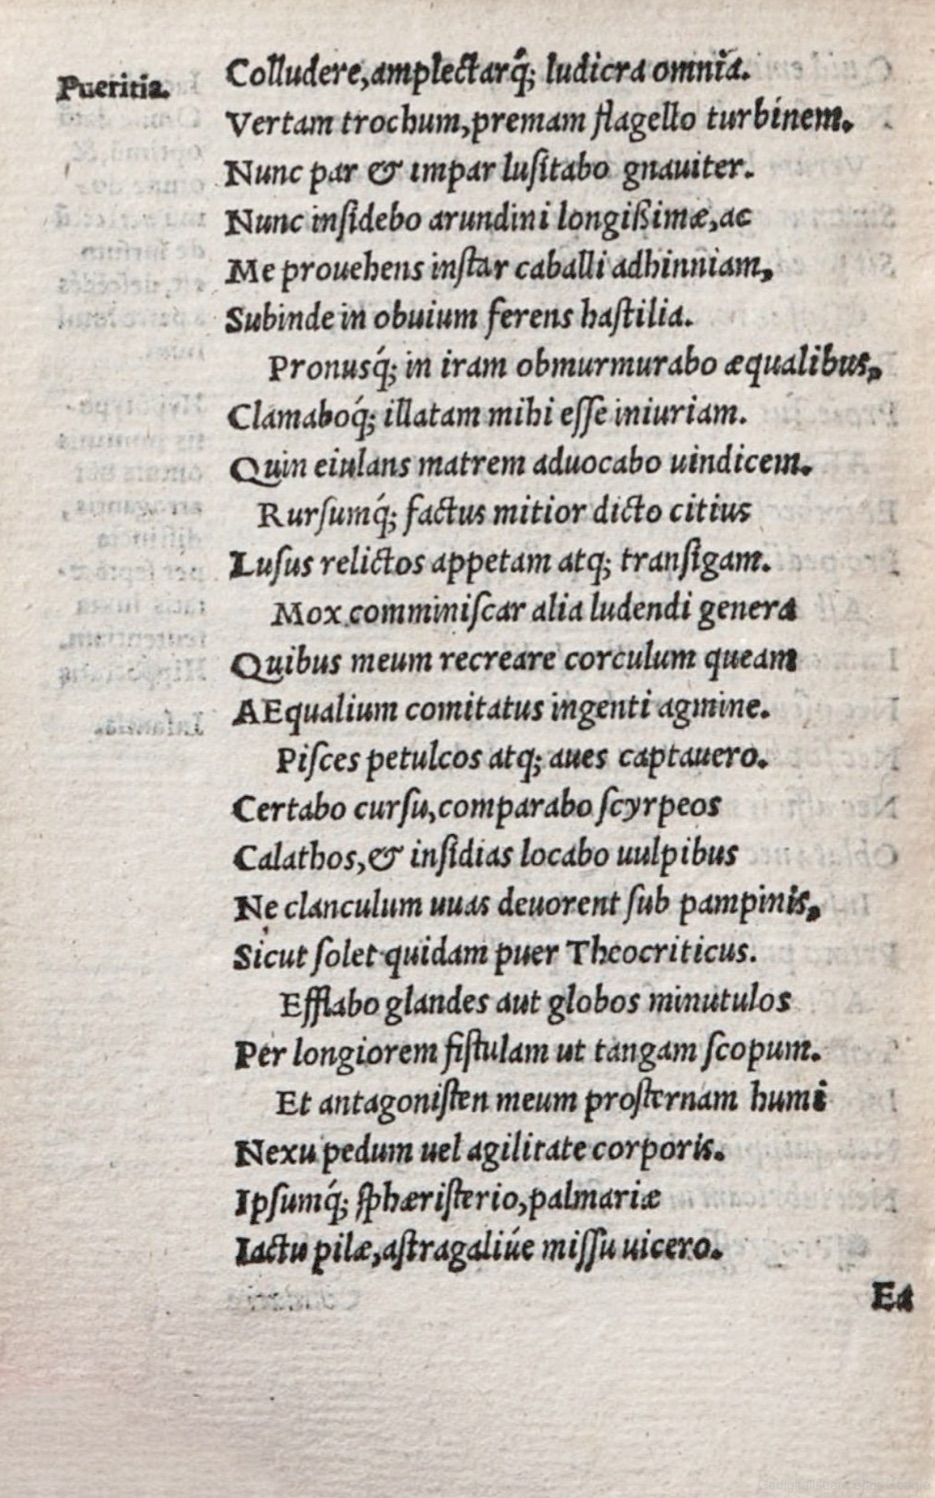 Pueritia.
Colludere, amplectarq́; ludicra omnĭa.
Vertam trochum, premam flagello turbínem.
Nunc par & impar luſitabo gnauiter.
Nunc inſidebo arundini longißimæ, ac
Me prouehens inſtar caballi adhinniam,
Subinde in obuium ferens haſtilia.
Pronusq́; in iram obmurmurabo æqualibus,
Clamaboq́; illatam mihi eſſe iniuriam.
Quin eiulans matrem aduocabo uindicem.
Rurſumq́; factus mitior dicto citius
Luſus relictos appetam atq; tranſigam.
Mox comminiſcar alia ludendi genera
Quibus meum recreare corculum queam
AEqualium comitatus ingenti agmine.
Piſces petulcos atq; aues captauero.
Certabo curſu, comparabo ſcyrpeos
Calathos, & inſidias locabo uulpibus
Ne clanculum uuas deuorent ſub pampinis,
Sicut ſolet quidam puer Theocriticus.
Efflabo glandes aut globos minutulos
Per longiorem fiſtulam ut tangam ſcopum.
Et antagoniſten meum proſternam humi
Nexu pedum uel agilitate corporis.
Ipſumq́; ſphæriſterio, palmariæ
Iactu pilæ, aſtragaliúe miſſu uicero.
Ea